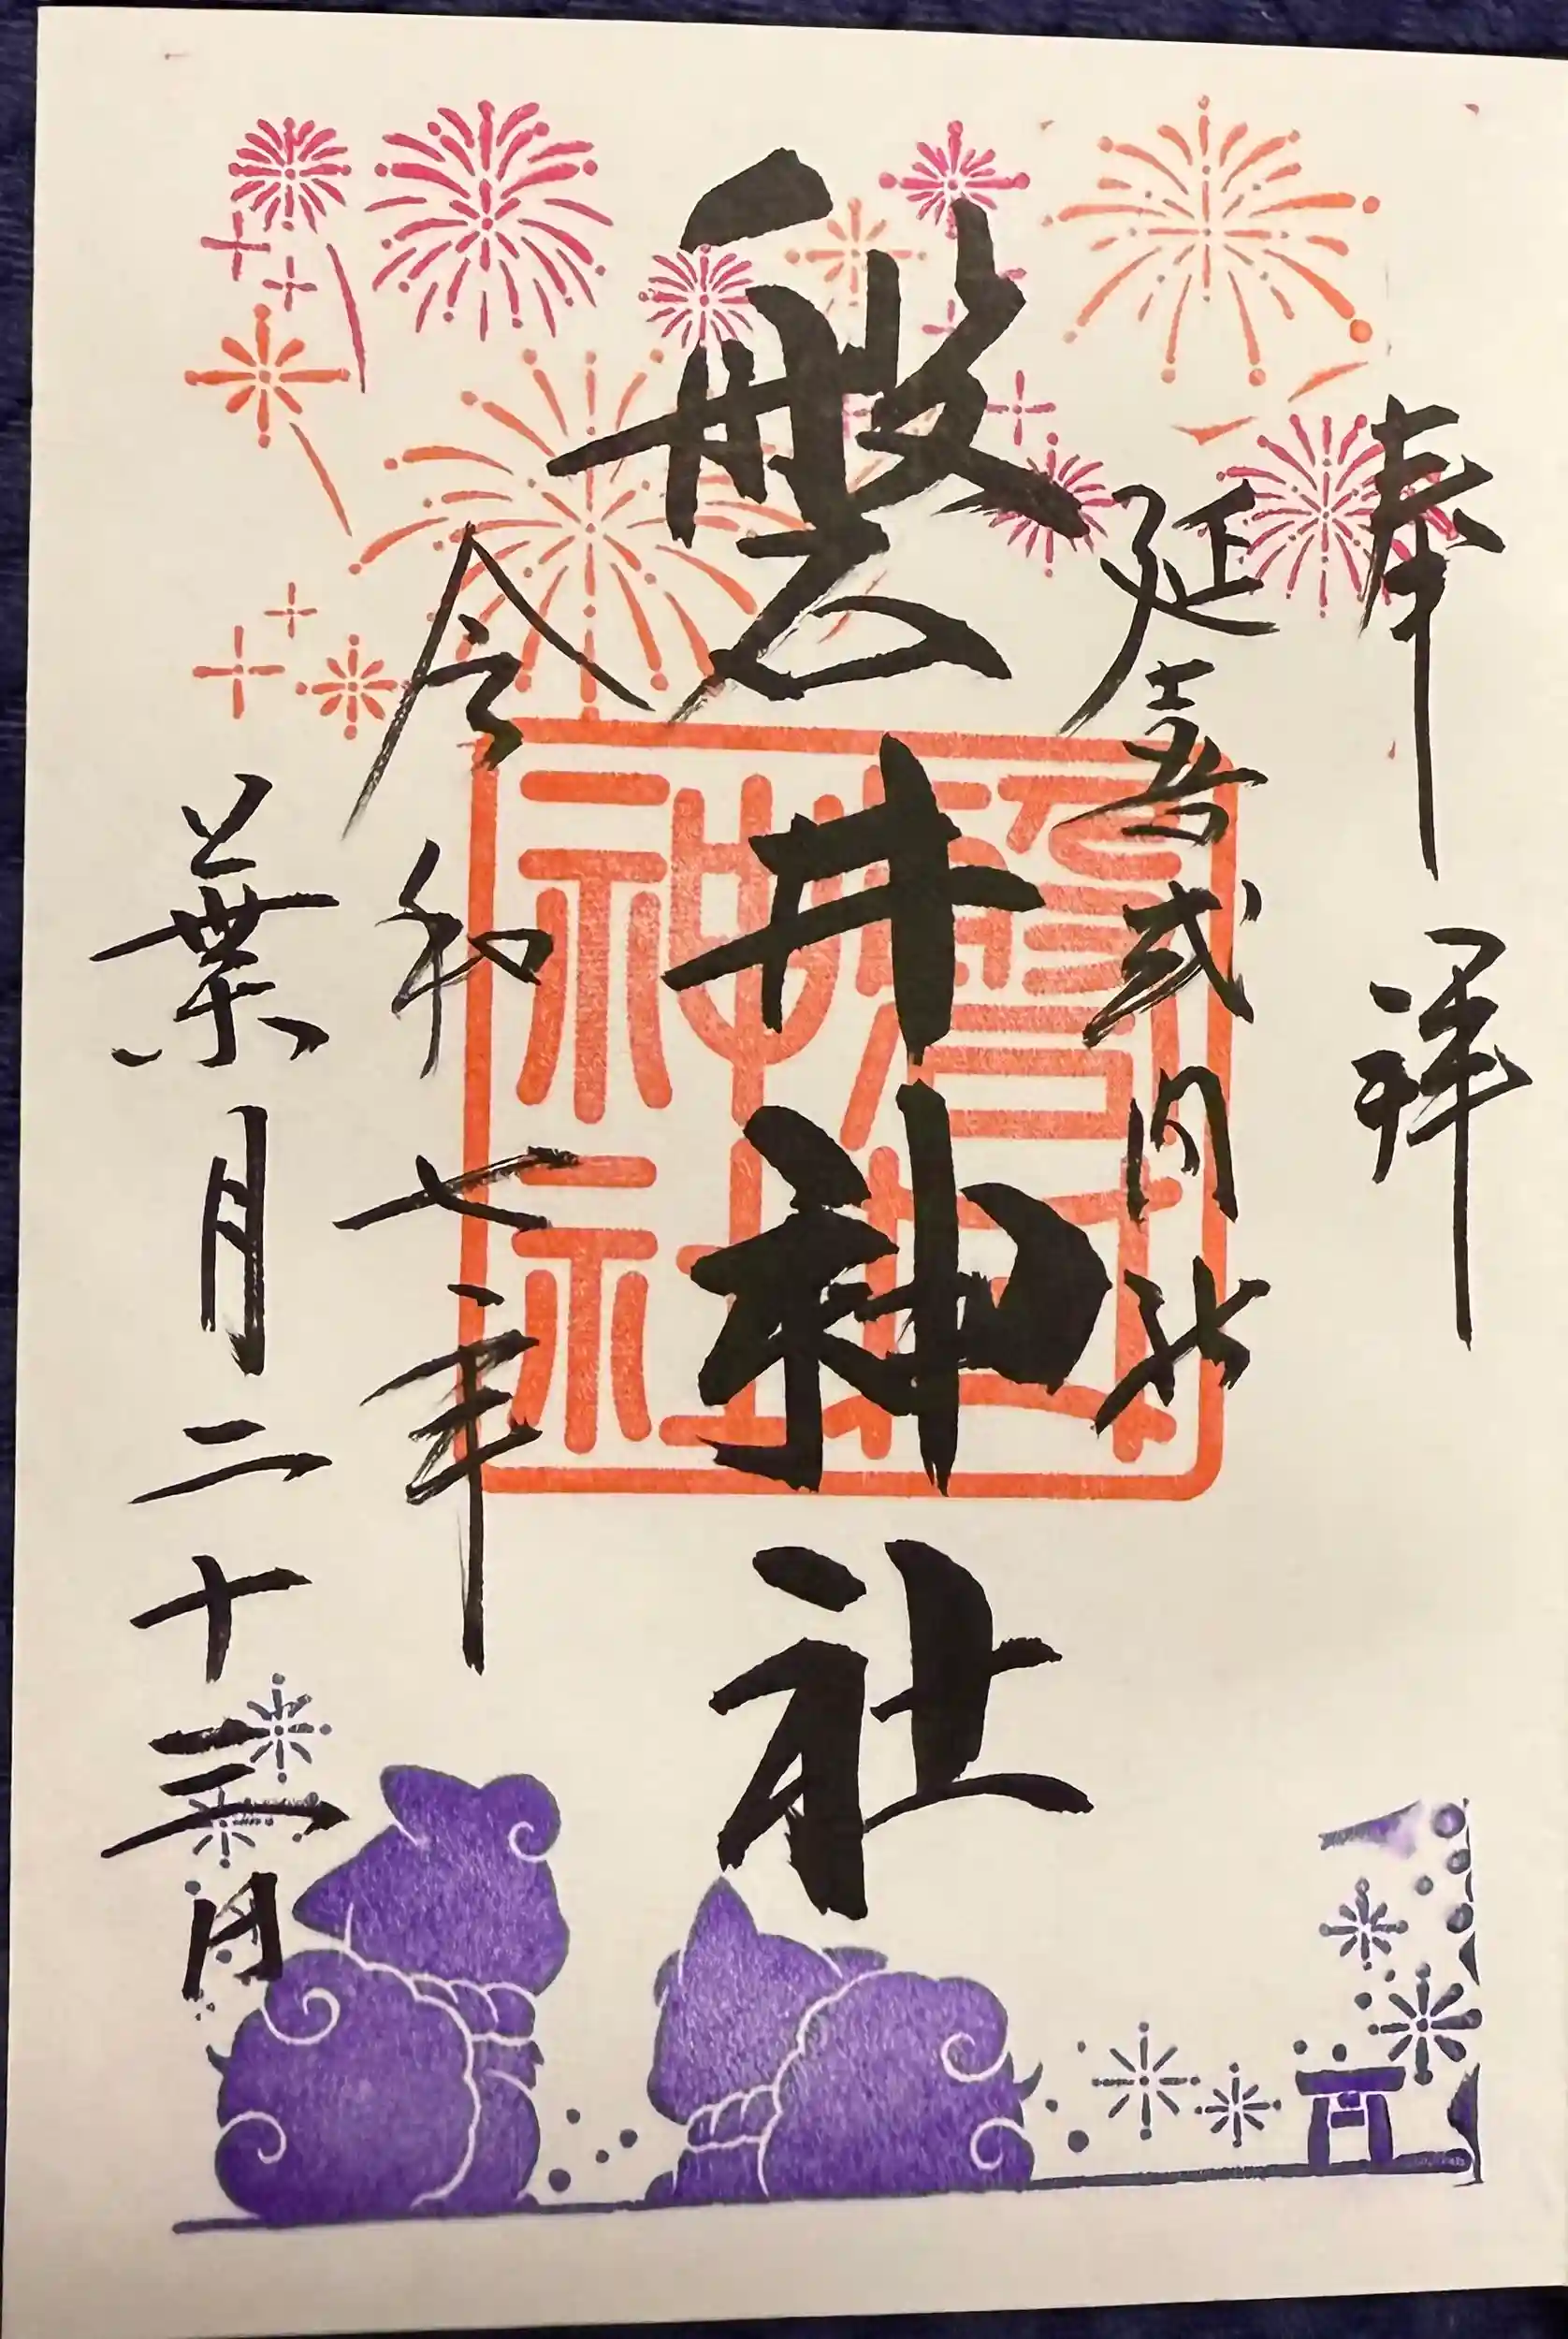 奉拝
延喜式内社
磐井神社
令和七年
葉月二十三日
磐井
神社